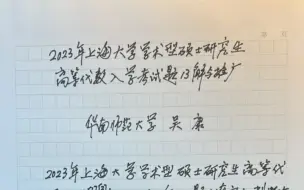 2023年上海大学学术型硕士研究生
高等代数入学考试题13解与推广
华南师范大学 吴康
2023年上海大学学术型硕士研究生高等代